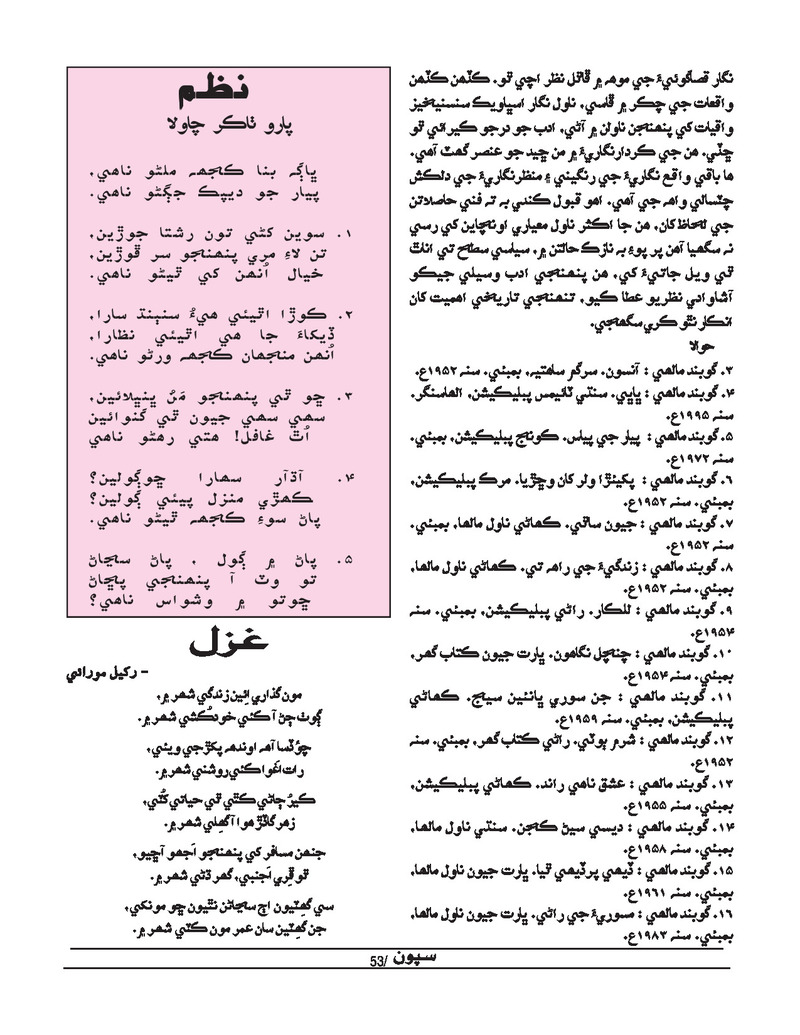 نگار قصاگوئيءَ جي موهہ ۾ ڦاٿل نظر اچي ٿو. ڪڏهن ڪڏهن
واقعات جي چڪر ۾ ڦاسي. ناول نگار اسڀاويڪ سنسنيخيز
واقيات کي پنهنجن ناولن ۾ آڻي، ادب جو درجو ڪيرائي ٿو
ڇڏي. هن جي ڪردارنگاريءَ ۾ من ڇيد جو عنصر گهٽ آهي.
ها باقي واقع نگاريءَ جي رنگيني ۽ منظرنگاريءَ جي دلڪش
چٽسالي واهہ جي آهي. اهو قبول ڪندي بہ تہ فني حاصلاتن
جي لحاظ کان، هن جا اڪثر ناول معياري اونچاين کي رسي
نہ سگهيا آهن پر پوءِ بہ نازڪ حالتن ۾، سياسي سطح تي اناٿ
ٿي ويل جاتيءَ کي، هن پنهنجي ادب وسيلي جيڪو
آشاوادي نظريو عطا ڪيو، تنهنجي تاريخي اهميت کان
انڪار نٿو ڪري سگهجي.
حوالا
۳. گوبند مالهي : آنسون. سرگم ساهتيہ، بمبئي. سنہ ۱۹۵۲ع.
۴. گوبند مالهي : پاپي. سنڌي ٽائيمس پبليڪيشن، الهاسنگر.
سنہ ۱۹۹۵ع.
۵. گوبند مالهي : پيار جي پياس. ڪونج پبليڪيشن، بمبئي.
سنہ ۱۹۷۲ع.
۶. گوبند مالهي : پکيئڙا ولر کان وڇڙيا. مرڪ پبليڪيشن،
بمبئي. سنہ ۱۹۵۲ع.
۷. گوبند مالهي : جيون ساٿي. ڪهاڻي ناول مالها، بمبئي.
سنہ ۱۹۵۲ع.
۸. گوبند مالهي : زندگيءَ جي راهہ تي. ڪهاڻي ناول مالها،
بمبئي. سنہ ۱۹۵۲ع.
۹. گوبند مالهي : للڪار. راڻي پبليڪيشن، بمبئي. سنہ
۱۹۵۴ع.
۱۰. گوبند مالهي : چنچل نگاهون. ڀارت جيون ڪتاب گهر،
بمبئي. سنہ ۱۹۵۴ع.
۱۱. گوبند مالهي : جن سوري ڀانئين سيج. ڪهاڻي
پبليڪيشن، بمبئي. سنہ ۱۹۵۹ع.
۱۲. گوبند مالهي : شرم ٻوٽي. راڻي ڪتاب گهر، بمبئي. سنہ
۱۹۵۲ع.
۱۳. گوبند مالهي : عشق ناهي راند. ڪهاڻي پبليڪيشن،
بمبئي. سنہ ۱۹۵۵ع.
۱۴. گوبند مالهي : ديسي سيڻ ڪجن. سنڌي ناول مالها،
بمبئي. سنہ ۱۹۵۸ع.
۱۵. گوبند مالهي : ڏيهي پرڏيهي ٿيا. ڀارت جيون ناول مالها،
بمبئي. سنہ ۱۹۶۱ع.
۱۶. گوبند مالهي : مسوريءَ جي راڻي. ڀارت جيون ناول مالها،
بمبئي. سنہ ۱۹۸۳ع.
نظم
پارو ٺاڪر چاولا
ڀاڳہ بنا ڪجهہ ملڻو ناهي،
پيار جو ديپڪ جڳڻو ناهي.
۱. سوين کڻي تون رشتا جوڙين،
تن لاءِ مري پنهنجو سر ڦوڙين،
خيال اُنهن کي ٿيڻو ناهي.
۲. ڪوڙا اٿيئي هيءُ سنٻنڌ سارا،
ڏيکاءَ جا هي اٿيئي نظارا،
اُنهن منجهان ڪجهہ ورڻو ناهي.
۳. ڇو ٿي پنهنجو مَنُ ڀنيلائين،
سهي سهي جيون ٿي گنوائين
اُٿ غافل! هتي رهڻو ناهي
۴. آڌار سهارا ڇوڳولين؟
ڪهڙي منزل پيئي ڳولين؟
پاڻ سوءِ ڪجهہ ٿيڻو ناهي.
۵. پاڻ ۾ ڳول ، پاڻ سڃاڻ
تو وٽ آ پنهنجي پڇاڻ
ڇوتو ۾ وشواس ناهي؟
غزل
- رکيل موراڻي
مون گذاري اِئين زندگي شهر ۾،
ڳوٺ ڄڻ آ ڪئي خودڪُشي شهر ۾.
چؤڏسا آهہ اوندهہ پکڙجي ويئي،
رات اغوا ڪئي روشني شهر ۾.
ڪيرُ ڄاڻي ڪٿي ٿي حياتي کُٽي،
زهر گاڏڙ هوا آ گهلي شهر ۾.
جنهن مسافر کي پنهنجو اَجهو آڇيو،
ٿو ڦِري اَجنبي، گهر ڌڻي شهر ۾.
سي گهٽيون اڄ سڃاڻن نٿيون ڇو مونکي،
جن گهٽين سان عمر مون ڪٽي شهر ۾.
سپون /53